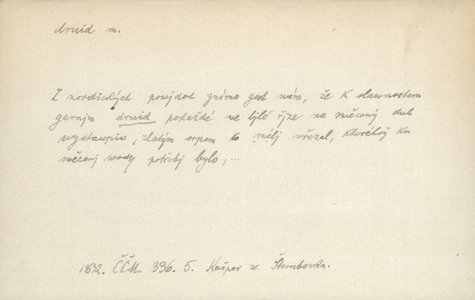 druid m.
Z nordických powjdad známo gest nám, že k slawnostem
garnjm druid pokaždé w bjlé řjze na swěcený dub
wystaupiw, zlatým srpem to mělj uřezal, kteréhož ku
swěcenj wody potřebj bylo,...
1832. ČČM. 396. 5. Kašpar ze Šternberka.